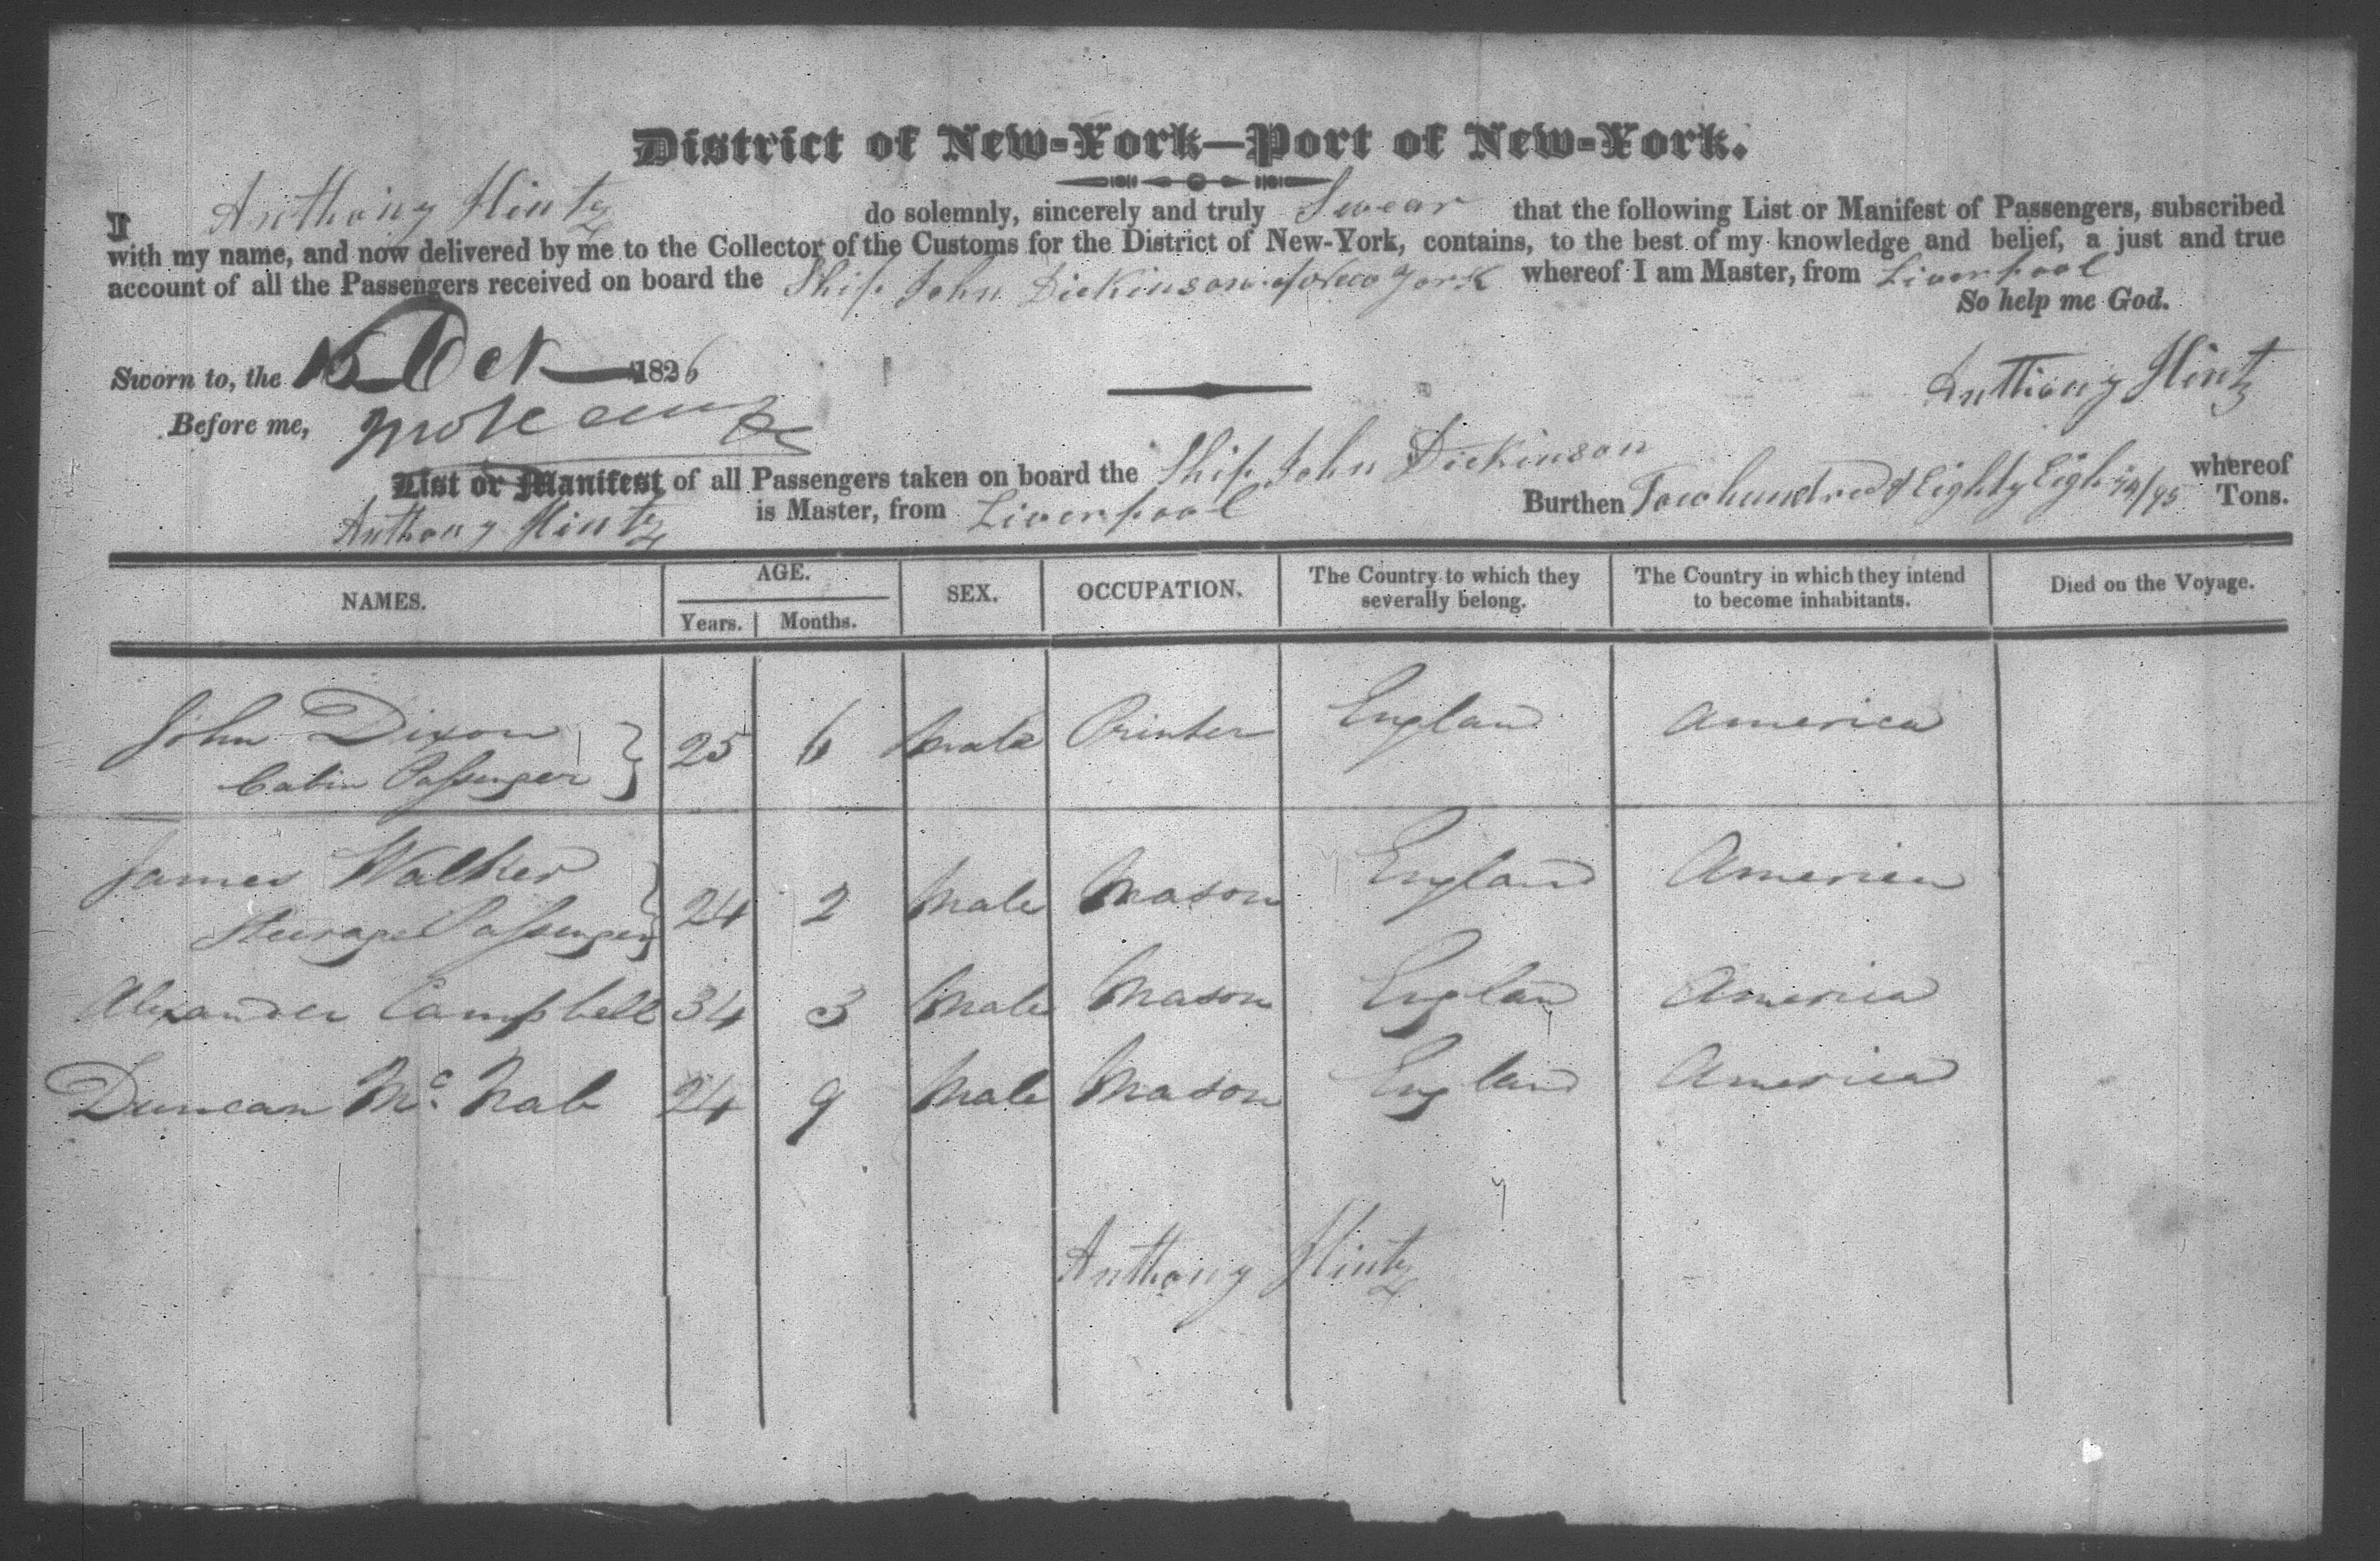 District of New-York—Port of New-York.
I Anthony Hintz do solemnly, sincerely and truly Swear that the following List or Manifest of Passengers, subscribed
with my name, and now delivered by me to the Collector of the Customs for the District of New-York, contains, to the best of my knowledge and belief, a just and true
account of all the Passengers received on board the Ship John Dickinson of New York whereof I am Master, from Liverpool
So help me God.
Sworn to, the 15 Oct 1826
Anthony Hintz
Before me,
List or Manifest of all Passengers taken on board the Ship John Dickinson whereof
Anthony Hintz is Master, from Liverpool Burthen Two hundred & Eighty Eigh 74/95 Tons.
NAMES. AGE. SEX. OCCUPATION. The Country to which they severally belong. The Country in which they intend to become inhabitants. Died on the Voyage.
Years. Months.
John Dixon 25 6 Male Printer England America
Cabin Passenger
James Walker 24 2 Male Mason England America
Steerage Passenger
Alexander Campbell 34 3 Male Mason England America
Duncan Mc Nab 24 9 Male Mason England America
Anthony Hintz